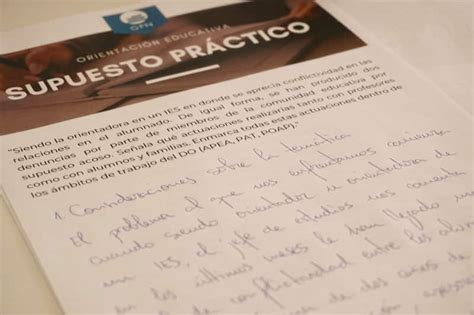 GFN
ORIENTACIÓN EDUCATIVA
SUPUESTO PRÁCTICO
"Siendo la orientadora en un IES en donde se aprecia conflictividad en las
relaciones en el alumnado. De igual forma, se han producido dos
denuncias por parte de miembros de la comunidad educativa por
supuesto acoso. Señala qué actuaciones realizarías tanto con profesores
como con alumnos y familias. Enmarca todas estas actuaciones dentro de
los ámbitos de trabajo del DO (APEA, PAT, POAP)."
1. Consideraciones sobre la temática
El problema al que nos enfrentamos
cuando siendo orientador u orientadora de
un IES, el jefe de estudios nos comenta
en los últimos meses le han llegado
conflictividad entre los
de dos